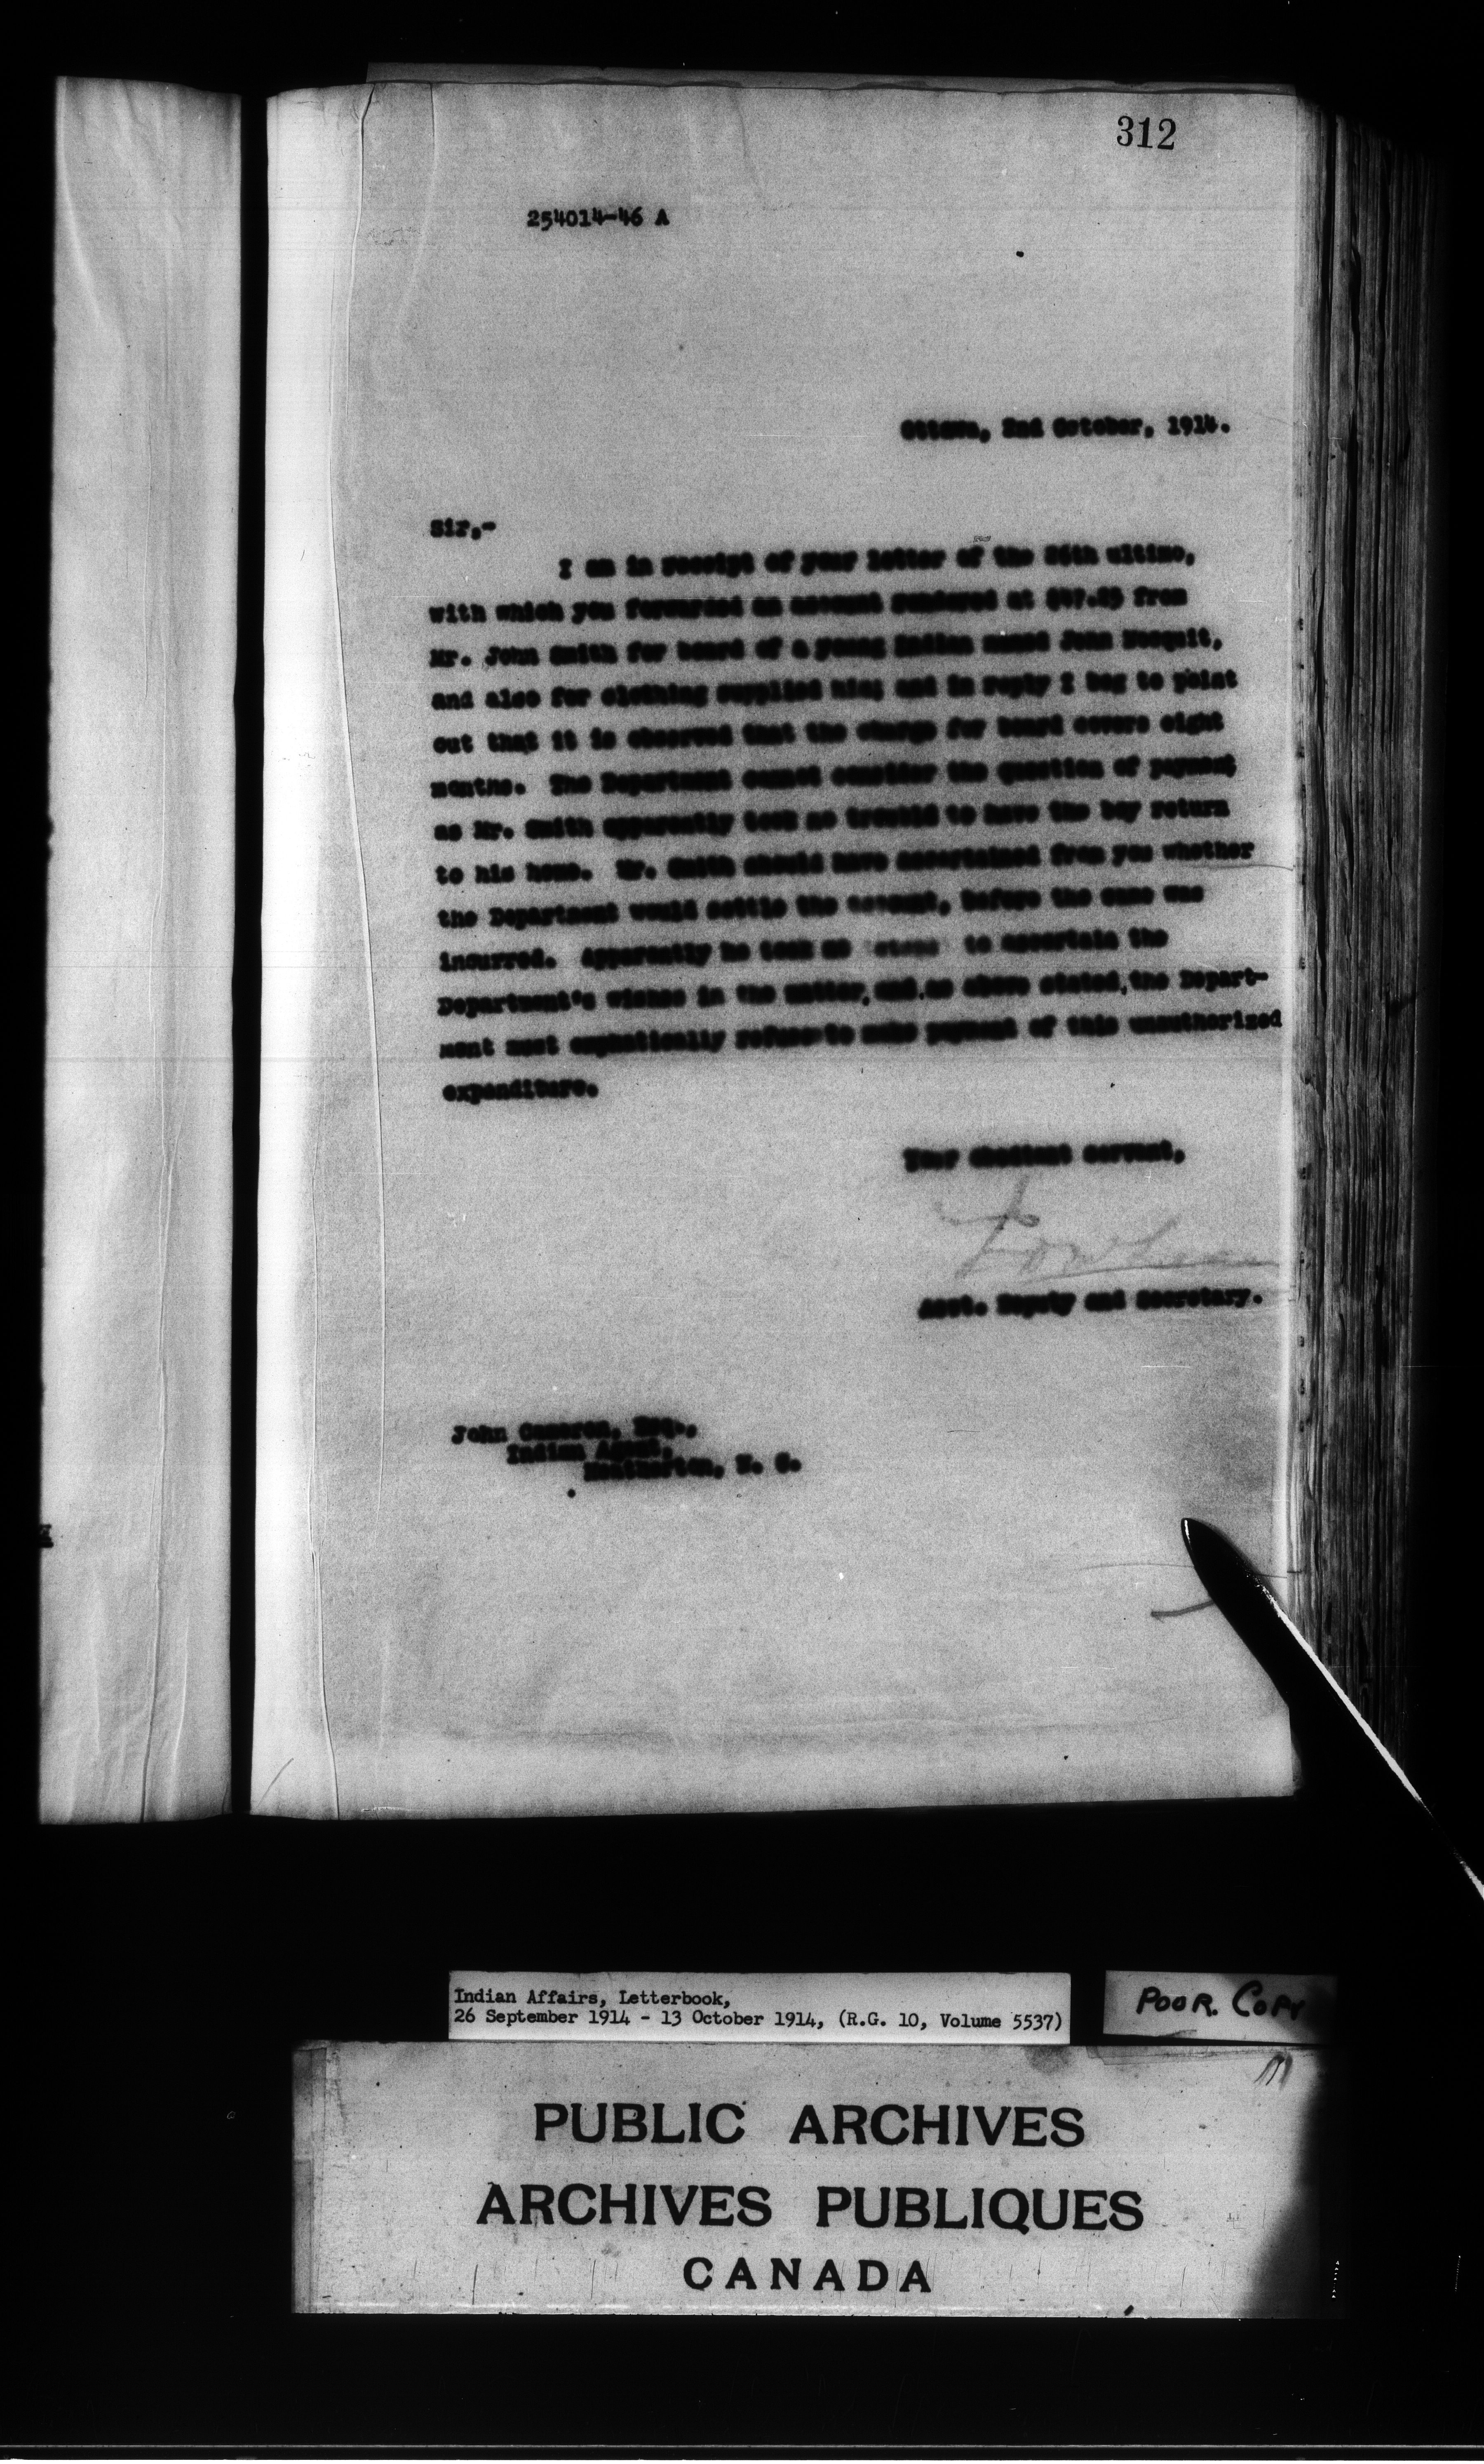 312
254014-46 A
Ottawa, 2nd October, 1914.
Sir,-
I am in receipt of your letter of the 26th ultimo,
with which you forwarded an account rendered at from
Mr. John Smith for board of a young Indian named John
and also for clothing supplied him; and in reply I beg to point
out that it is observed that the charge for board covers eight
months. The Department cannot consider the question of payment
as Mr. Smith apparently took no trouble to have the boy return
to his home. Mr. Smith should have ascertained from you whether
the Department would settle the account, before the same was
incurred. Apparently he took no steps to ascertain the
Department's wishes in the matter, and, as above stated, the Depart-
ment must emphatically refuse to make payment of this unauthorized
expenditure.
Your obedient servant,
Asst. Deputy and Secretary.
John Cameron, Esq.,
Indian Agent,
Heatherton, N. S.
Indian Affairs, Letterbook,
26 September 1914 - 13 October 1914, (R.G. 10, Volume 5537)
POOR. COPY
PUBLIC ARCHIVES
ARCHIVES PUBLIQUES
CANADA